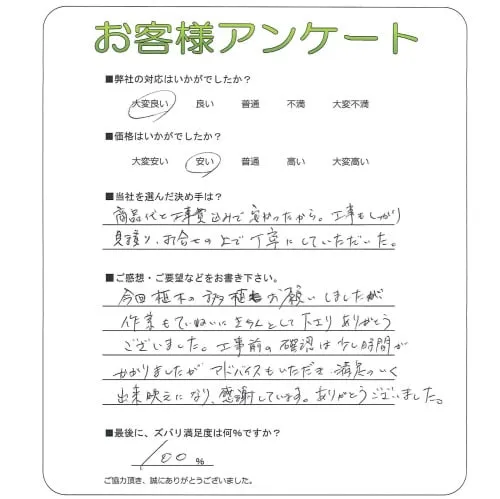 お客様アンケート
■弊社の対応はいかがでしたか?
大変良い 良い 普通 不満 大変不満
■価格はいかがでしたか?
大変安い 安い 普通 高い 大変高い
■当社を選んだ決め手は?
商品代と工事費込みで安かったから。工事もしっかり
見積り、お合せの上で丁寧にしていただいた。
■ご感想・ご要望などをお書き下さい。
今回植木の お願いしましたが
作業もていねいにきちんとして下さり ありがとう
ございました。工事前の確認は少し時間が
かかりましたが アドバイスもいただき 満足のいく
出来映えになり、感謝しています。ありがとうございました。
■最後に、ズバリ満足度は何%ですか?
100 %
ご協力頂き、誠にありがとうございました。